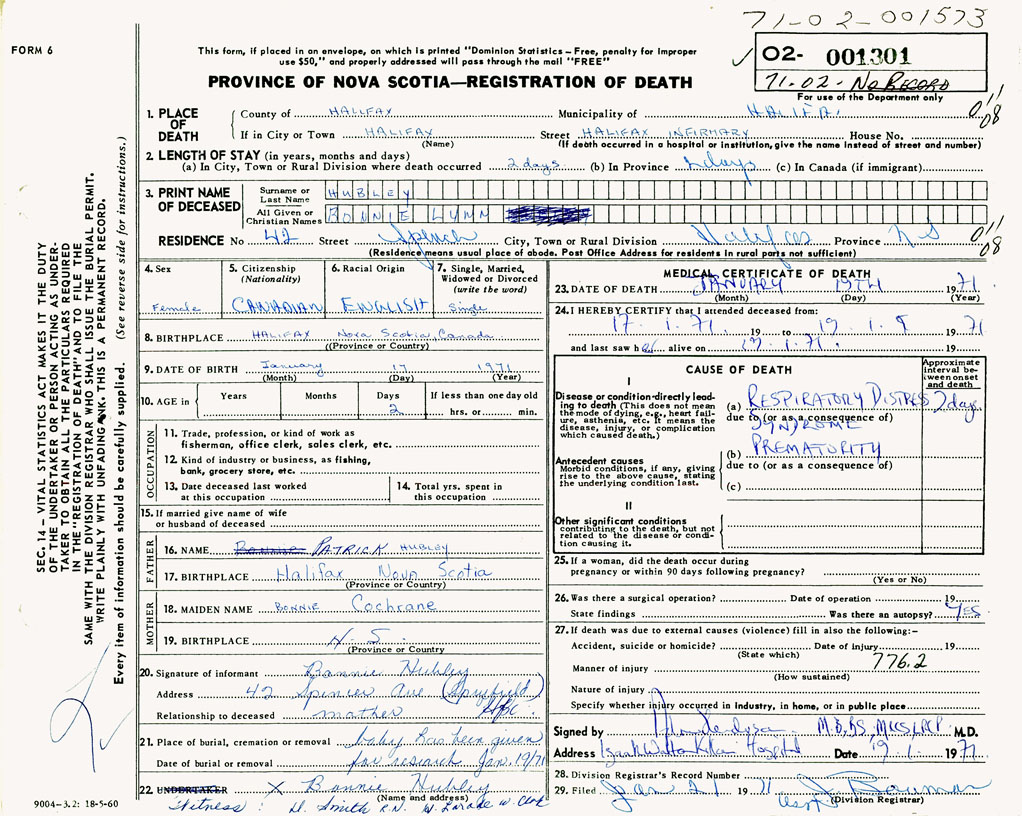 71-02-001573
FORM 6
This form, if placed in an envelope, on which is printed "Dominion Statistics – Free, penalty for improper
use $50," and properly addressed will pass through the mail "FREE"
02- 001301
71-02-No RECORD
For use of the Department only
PROVINCE OF NOVA SCOTIA—REGISTRATION OF DEATH
1. PLACE OF DEATH
County of HALIFAX Municipality of
If in City or Town HALIFAX Street HALIFAX INFIRMARY House No.
(Name) (If death occurred in a hospital or institution, give the name instead of street and number)
2. LENGTH OF STAY (in years, months and days)
(a) In City, Town or Rural Division where death occurred 2 days (b) In Province 2 days (c) In Canada (if immigrant)
3. PRINT NAME OF DECEASED
Surname or Last Name HUBLEY
All Given or Christian Names BONNIE LYNN
RESIDENCE No 42 Street City, Town or Rural Division Halifax Province NS
(Residence means usual place of abode. Post Office Address for residents in rural parts not sufficient)
4. Sex
Female
5. Citizenship
(Nationality)
CANADIAN
6. Racial Origin
ENGLISH
7. Single, Married, Widowed or Divorced
(write the word)
Single
8. BIRTHPLACE HALIFAX Nova Scotia, Canada
(Province or Country)
9. DATE OF BIRTH January 17 1971
(Month) (Day) (Year)
10. AGE in Years Months Days If less than one day old
2 hrs. or min.
OCCUPATION
11. Trade, profession, or kind of work as
fisherman, office clerk, sales clerk, etc.
12. Kind of industry or business, as fishing,
bank, grocery store, etc.
13. Date deceased last worked
at this occupation
14. Total yrs. spent in
this occupation
15. If married give name of wife
or husband of deceased
FATHER
16. NAME Bonnie PATRICK HUBLEY
17. BIRTHPLACE Halifax Nova Scotia
(Province or Country)
MOTHER
18. MAIDEN NAME BONNIE Cochrane
19. BIRTHPLACE N.S.
(Province or Country
20. Signature of informant Bonnie Hubley
Address 42 Spencer Ave (Spryfield) Hfx.
Relationship to deceased mother
21. Place of burial, cremation or removal baby has been given
Date of burial or removal for research Jan. 19/71
22. UNDERTAKER X Bonnie Hubley
(Name and address)
Witness: D. Smith R.N.
9004-3.2: 18-5-60
MEDICAL CERTIFICATE OF DEATH
23. DATE OF DEATH JANUARY 19TH 1971
(Month) (Day) (Year)
24. I HEREBY CERTIFY that I attended deceased from:
17.1.71 19 to 19.1. 1971
and last saw her alive on 19.1.71. 19
CAUSE OF DEATH
Approximate interval between onset and death
I
Disease or condition directly leading to death (This does not mean the mode of dying, e.g., heart failure, asthenia, etc. It means the disease, injury, or complication which caused death.)
(a) RESPIRATORY DISTRESS 2 days
due to (or as a consequence of)
SYNDROME
(b) PREMATURITY
due to (or as a consequence of)
Antecedent causes
Morbid conditions, if any, giving rise to the above cause, stating the underlying condition last.
(c)
II
Other significant conditions
contributing to the death, but not related to the disease or condition causing it.
25. If a woman, did the death occur during
pregnancy or within 90 days following pregnancy?
(Yes or No)
26. Was there a surgical operation? Date of operation 19
State findings Was there an autopsy? YES
27. If death was due to external causes (violence) fill in also the following:–
Accident, suicide or homicide? Date of injury 19
(State which) 776.2
Manner of injury
(How sustained)
Nature of injury
Specify whether injury occurred in industry, in home, or in public place
Signed by M.B,BS, M.D.
Address Izaak Walton Killam Hospital Date 19.1. 1971
28. Division Registrar's Record Number
29. Filed Jan 21 1971
(Division Registrar)
SEC. 14 – VITAL STATISTICS ACT MAKES IT THE DUTY
OF THE UNDERTAKER OR PERSON ACTING AS UNDER-
TAKER TO OBTAIN ALL THE PARTICULARS REQUIRED
IN THE "REGISTRATION OF DEATH" AND TO FILE THE
SAME WITH THE DIVISION REGISTRAR WHO SHALL ISSUE THE BURIAL PERMIT.
WRITE PLAINLY WITH UNFADING INK. THIS IS A PERMANENT RECORD.
Every item of information should be carefully supplied. (See reverse side for instructions.)